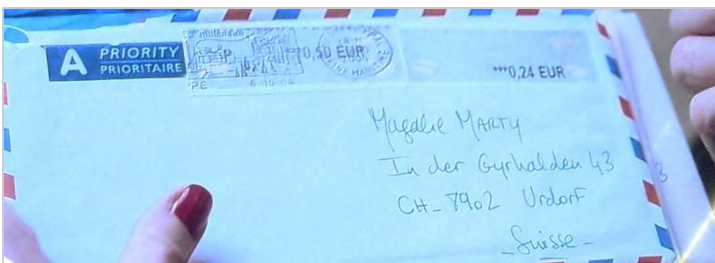 A PRIORITY
PRIORITAIRE
*0,50 EUR
***0,24 EUR
Magalie MARTY
In der Gyrhalden 43
CH-7902 Urdorf
-Suisse-